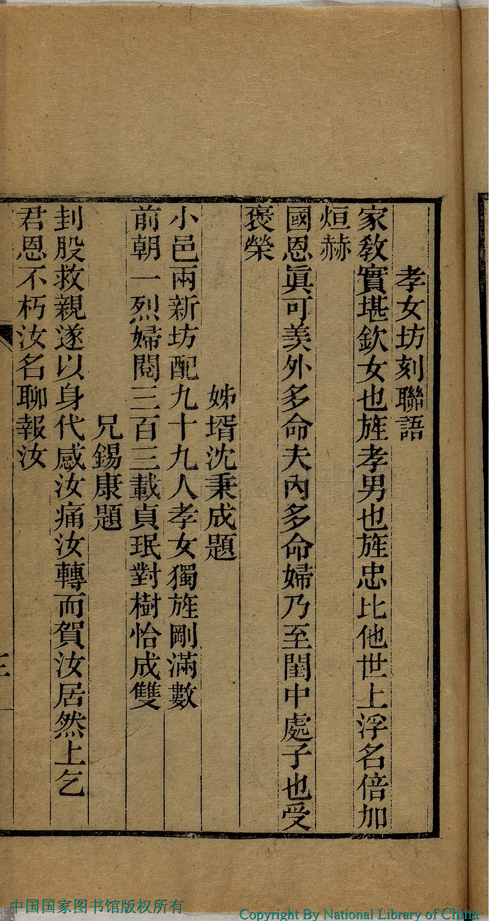 孝女坊刻聯語
家敎實堪欽女也旌孝男也旌忠比他世上浮名倍加
烜赫
國恩眞可羨外多命夫內多命婦乃至閨中處子也受
褒榮
姊壻沈秉成題
小邑兩新坊配九十九人孝女獨旌剛滿數
前朝一烈婦閱三百三載貞珉對樹恰成雙
兄錫康題
刲股救親遂以身代感汝痛汝轉而賀汝居然上乞
君恩不朽汝名聊報汝
三
中国国家图书馆版权所有
Copyright By National Library of China